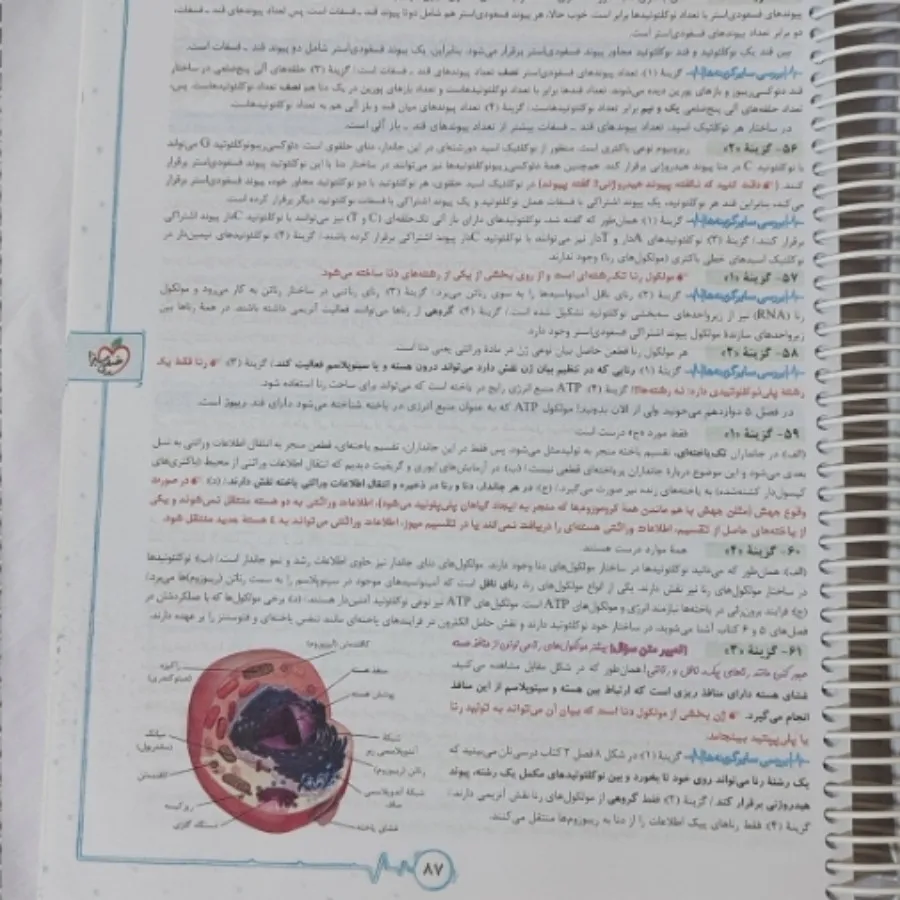 پیوندهای فسفودی‌استر با تعداد نوکلئوتیدها برابر است. خوب حالا، هر پیوند فسفودی‌استر هم شامل دوتا پیوند قند ـ فسفات است. پس تعداد پیوندهای قند ـ فسفات،
دو برابر تعداد پیوندهای فسفودی‌استر است.
بین قند یک نوکلئوتید و قند نوکلئوتید مجاور پیوند فسفودی‌استر برقرار می‌شود. بنابراین، یک پیوند فسفودی‌استر شامل دو پیوند قند ـ فسفات است.
بررسی سایر گزینه‌ها: گزینهٔ (۱): تعداد پیوندهای فسفودی‌استر نصف تعداد پیوندهای قند ـ فسفات است. / گزینهٔ (۳): حلقه‌های آلی پنج‌ضلعی در ساختار
قند دئوکسی‌ریبوز و بازهای پورین دیده می‌شوند. تعداد قندها برابر با تعداد نوکلئوتیدهاست و تعداد بازهای پورین در یک دنا هم نصف تعداد نوکلئوتیدهاست. پس،
تعداد حلقه‌های آلی پنج‌ضلعی یک و نیم برابر تعداد نوکلئوتیدهاست. / گزینهٔ (۴): تعداد پیوندهای میان قند و باز آلی هم به تعداد نوکلئوتیدهاست.
در ساختار هر نوکلئیک اسید، تعداد پیوندهای قند ـ فسفات بیشتر از تعداد پیوندهای قند ـ باز آلی است.
۵۶- گزینهٔ «۲» ریزوبیوم نوعی باکتری است. منظور از نوکلئیک اسید دورشته‌ای در این جاندار، دنای حلقوی است. دئوکسی‌ریبونوکلئوتید G می‌تواند
با نوکلئوتید C در دنا پیوند هیدروژنی برقرار کند. همچنین همهٔ دئوکسی‌ریبونوکلئوتیدها نیز می‌توانند در ساختار دنا با این نوکلئوتید پیوند فسفودی‌استر برقرار
کنند. (دقت کنید که نگفته پیوند هیدروژنی!! گفته پیوند) در نوکلئیک اسید حلقوی، هر نوکلئوتید با دو نوکلئوتید مجاور خود، پیوند فسفودی‌استر برقرار
می‌کند، بنابراین قند هر نوکلئوتید، یک پیوند اشتراکی با فسفات همان نوکلئوتید و یک پیوند اشتراکی با فسفات نوکلئوتید دیگر برقرار کرده است.
بررسی سایر گزینه‌ها: گزینهٔ (۱): همان‌طور که گفته شد، نوکلئوتیدهای دارای باز آلی تک‌حلقه‌ای (C و T) نیز می‌توانند با نوکلئوتید Cدار پیوند اشتراکی
برقرار کنند. / گزینهٔ (۳): نوکلئوتیدهای Aدار و Tدار نیز می‌توانند با نوکلئوتید Cدار پیوند اشتراکی برقرار کرده باشند. / گزینهٔ (۴): نوکلئوتیدهای تیمین‌دار در
نوکلئیک اسیدهای خطی باکتری (مولکول‌های رنا) وجود ندارند.
۵۷- گزینهٔ «۱» مولکول رنا تک‌رشته‌ای است و از روی بخشی از یکی از رشته‌های دنا ساخته می‌شود.
بررسی سایر گزینه‌ها: گزینهٔ (۲): رنای ناقل آمینواسیدها را به سوی رناتن می‌برد. / گزینهٔ (۳): رنای رناتنی در ساختار رناتن به کار می‌رود و مولکول
رنا (RNA) نیز از زیرواحدهای سه‌بخشی نوکلئوتید تشکیل شده است. / گزینهٔ (۴): گروهی از رناها می‌توانند فعالیت آنزیمی داشته باشند. در همهٔ رناها بین
زیرواحدهای سازندهٔ مولکول پیوند اشتراکی فسفودی‌استر وجود دارد.
۵۸- گزینهٔ «۲» هر مولکول رنا قطعن حاصل بیان نوعی ژن در مادهٔ وراثتی یعنی دنا است.
بررسی سایر گزینه‌ها: گزینهٔ (۱): رنایی که در تنظیم بیان ژن نقش دارد می‌تواند درون هسته و یا سیتوپلاسم فعالیت کند. / گزینهٔ (۳): رنا فقط یک
رشته پلی‌نوکلئوتیدی دارد؛ نه رشته‌ها!! / گزینهٔ (۴): ATP منبع انرژی رایج در یاخته است که می‌تواند برای ساخت رنا استفاده شود.
در فصل ۵ دوازدهم می‌خونید ولی از الان بدونید! مولکول ATP که به عنوان منبع انرژی در یاخته شناخته می‌شود دارای قند ریبوز است.
۵۹- گزینهٔ «۱» فقط مورد «ج» درست است.
(الف): در جانداران تک‌یاخته‌ای، تقسیم یاخته منجر به تولیدمثل می‌شود. پس فقط در این جانداران، تقسیم یاخته‌ای، قطعن منجر به انتقال اطلاعات وراثتی به نسل
بعدی می‌شود و این موضوع دربارهٔ جانداران پریاخته‌ای قطعی نیست! (ب): در آزمایش‌های ایوری و گریفیت دیدیم که انتقال اطلاعات وراثتی از محیط (باکتری‌های
کپسول‌دار کشته‌شده) به یاخته‌های زنده نیز صورت می‌گیرد. / (ج): در هر جاندار، دنا و رنا در ذخیره و انتقال اطلاعات وراثتی یاخته نقش دارند. / (د): در صورت
وقوع جهش (مثلن جهش با هم ماندن همهٔ کروموزوم‌ها که منجر به ایجاد گیاهان پلی‌پلوئید می‌شود)، اطلاعات وراثتی به دو هسته منتقل نمی‌شوند و یکی
از یاخته‌های حاصل از تقسیم، اطلاعات وراثتی هسته‌ای را دریافت نمی‌کند یا در تقسیم میوز، اطلاعات وراثتی می‌تواند به ٤ هستهٔ جدید منتقل شود.
۶۰- گزینهٔ «۴» همهٔ موارد درست هستند.
(الف): همان‌طور که می‌دانید نوکلئوتیدها در ساختار مولکول‌های دنا وجود دارند. مولکول‌های دنای جاندار نیز حاوی اطلاعات رشد و نمو جاندار است. / (ب): نوکلئوتیدها
در ساختار مولکول‌های رنا نیز نقش دارند. یکی از انواع مولکول‌های رنا، رنای ناقل است که آمینواسیدهای موجود در سیتوپلاسم را به سمت رناتن (ریبوزوم)ها می‌برد. /
(ج): فرایند برون‌رانی در یاخته‌ها نیازمند انرژی و مولکول‌های ATP است. مولکول‌های ATP نیز نوعی نوکلئوتید آدنین‌دار هستند. / (د): برخی مولکول‌ها که با عملکردشان در
فصل‌های ۵ و ۶ کتاب آشنا می‌شوید، در ساختار خود نوکلئوتید دارند و نقش حامل الکترون در فرایندهای یاخته‌ای مانند تنفس یاخته‌ای و فتوسنتز را بر عهده دارند.
۶۱- گزینهٔ «۳» (تعبیر متن سؤال): بیشتر مولکول‌های رنا می‌توانن از منافذ هسته
عبور کنن مانند رناهای پیک، ناقل و رناتنی! همان‌طور که در شکل مقابل مشاهده می‌کنید،
غشای هسته دارای منافذ ریزی است که ارتباط بین هسته و سیتوپلاسم از این منافذ
انجام می‌گیرد. ژن بخشی از مولکول دنا است که بیان آن می‌تواند به تولید رنا
یا پلی‌پپتید بینجامد.
بررسی سایر گزینه‌ها: گزینهٔ (۱): در شکل ۸ فصل ۲ کتاب درسی‌تان می‌بینید که
یک رشتهٔ رنا می‌تواند روی خود تا بخورد و بین نوکلئوتیدهای مکمل یک رشته، پیوند
هیدروژنی برقرار کند. / گزینهٔ (۲): فقط گروهی از مولکول‌های رنا نقش آنزیمی دارند. /
گزینهٔ (۴): فقط رناهای پیک اطلاعات را از دنا به ریبوزوم‌ها منتقل می‌کنند.
کافنده‌تن (لیزوزوم)
راکیزه
(میتوکندری)
منفذ هسته
پوشش هسته
میانک
(سانتریول)
شبکهٔ
آندوپلاسمی زبر
رناتن (ریبوزوم)
کافنده‌تن
شبکهٔ آندوپلاسمی
صاف
ریزکیسه
دستگاه گلژی
غشای یاخته
خیلی سبز
۸۷